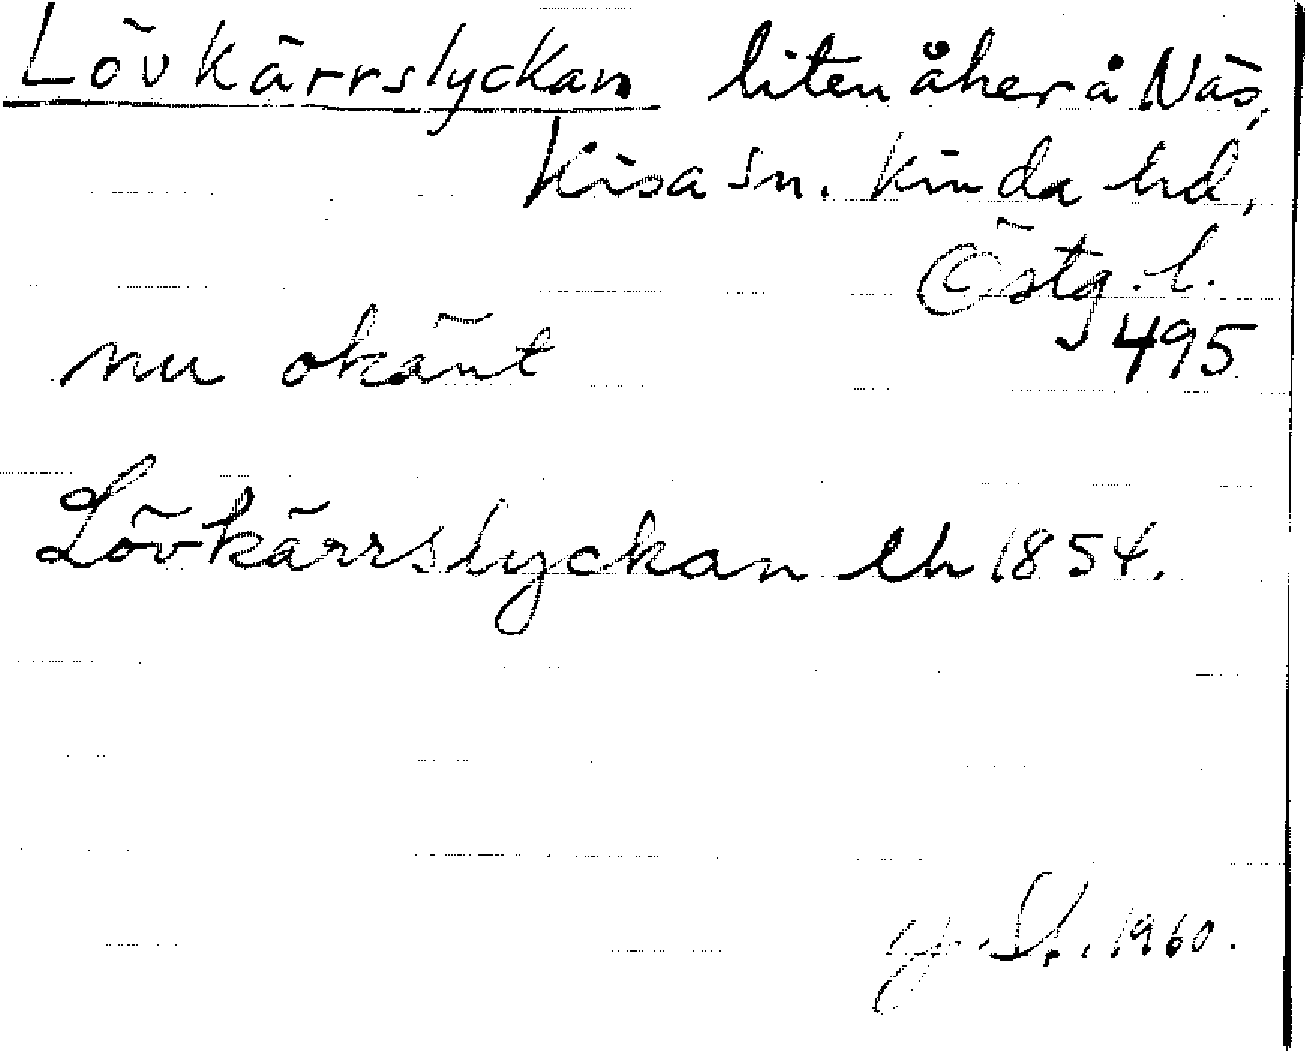 Lövkärrslyckan liten åker å Näs,
Kisa sn. Kinda hd,
Östg. l.
495
nu okänt
Lövkärrslyckan Lh 1854.
1960.